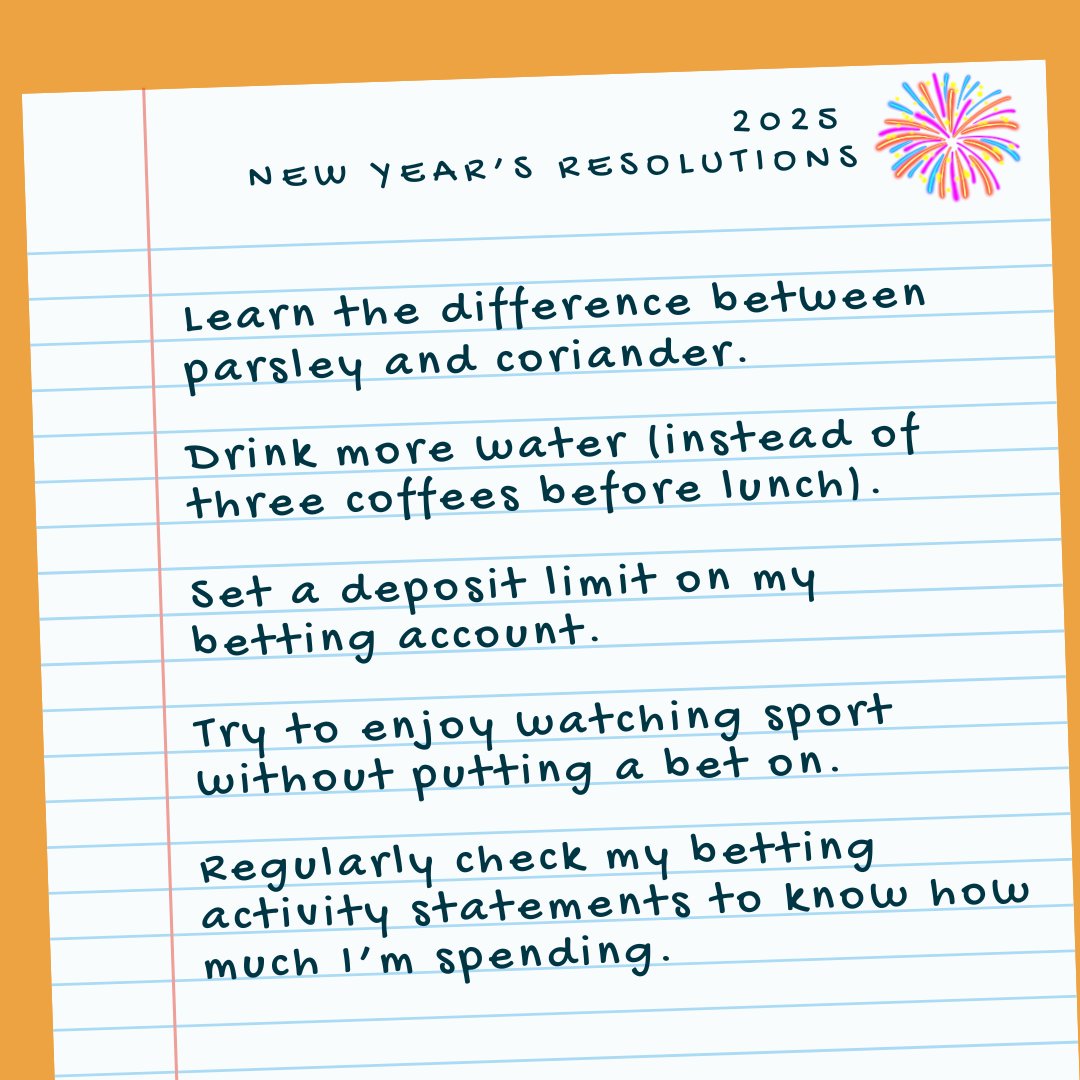 2025
NEW YEAR'S RESOLUTIONS
Learn the difference between
parsley and coriander.
Drink more water (instead of
three coffees before lunch).
Set a deposit limit on my
betting account.
Try to enjoy watching sport
without putting a bet on.
Regularly check my betting
activity statements to know how
much I'm spending.